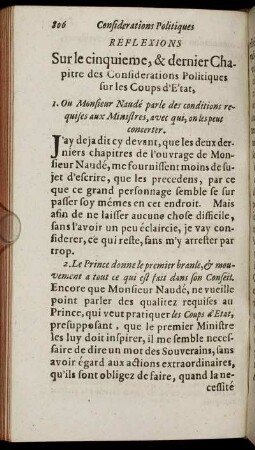 806 Considerations Politiques
REFLEXIONS
Sur le cinquieme, & dernier Cha-
pitre des Considerations Politiques
sur les Coups d'Etat,
1. Ou Monsieur Naudé parle des conditions re-
quises aux Ministres, avec qui, on les peut
concerter.
J'ay deja dit cy devant, que les deux der-
niers chapitres de l'ouvrage de Mon-
sieur Naudé, me fournissent moins de su-
jet d'escrire, que les precedens, par ce
que ce grand personnage semble se sur-
passer soy mémes en cet endroit. Mais
afin de ne laisser aucune chose dificile,
sans l'avoir un peu éclaircie, je vay con-
siderer, ce qui reste, sans m'y arrester par
trop.
2. Le Prince donne le premier branle, & mou-
vement a tout ce qui est fait dans son Conseil.
Encore que Monsieur Naudé, ne vueille
point parler des qualitez requises au
Prince, qui veut pratiquer les Coups d'Etat,
presupposant, que le premier Ministre
les luy doit inspirer, il me semble neces-
saire de dire un mot des Souverains, sans
avoir égard aux actions extraordinaires,
qu'ils sont obligez de faire, quand la ne-
cessité